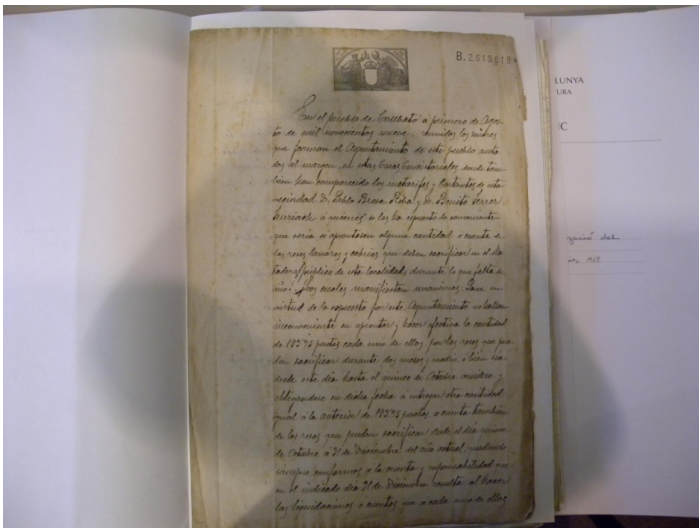 B. 2.618.619
En el pueblo de a primero de Agos-
to de mil novecientos nueve, reunidos los señores
que forman el Ayuntamiento de este pueblo anota-
dos al margen, en estas Casas Consistoriales donde tam-
bien han comparecido los y de esta
vecindad D. Pablo y D. Benito Ferrer
á quienes se les ha espuesto lo conveniente
que seria si aprontasen alguna cantidad á cuenta de
las reses lanares y cabrias que deban sacrificar en el Ma-
tadero público de esta localidad durante lo que falta de
año. Los cuales manifiestan unanimes: Que en
virtud de lo espuesto por este Ayuntamiento no hallan
inconveniente en aprontar y hacer efectiva la cantidad
de 183'75 pesetas cada uno de ellos, por las reses que pue-
dan sacrificar durante dos meses y medio ó bien sea
desde este día hasta el quince de Octubre venidero y
obligandose en dicha fecha á entregar otra cantidad
igual á la anterior de 183'75 pesetas á cuenta tambien
de las reses que puedan sacrificar desde el día quince
de Octubre á 31 de Diciembre del año actual, quedando
siempre conformes á la cuenta y responsabilidad que
en el indicado día 31 de Diciembre resulte al hacer
las liquidaciones ó cuentas que á cada uno de ellos
LUNYA
URA
C